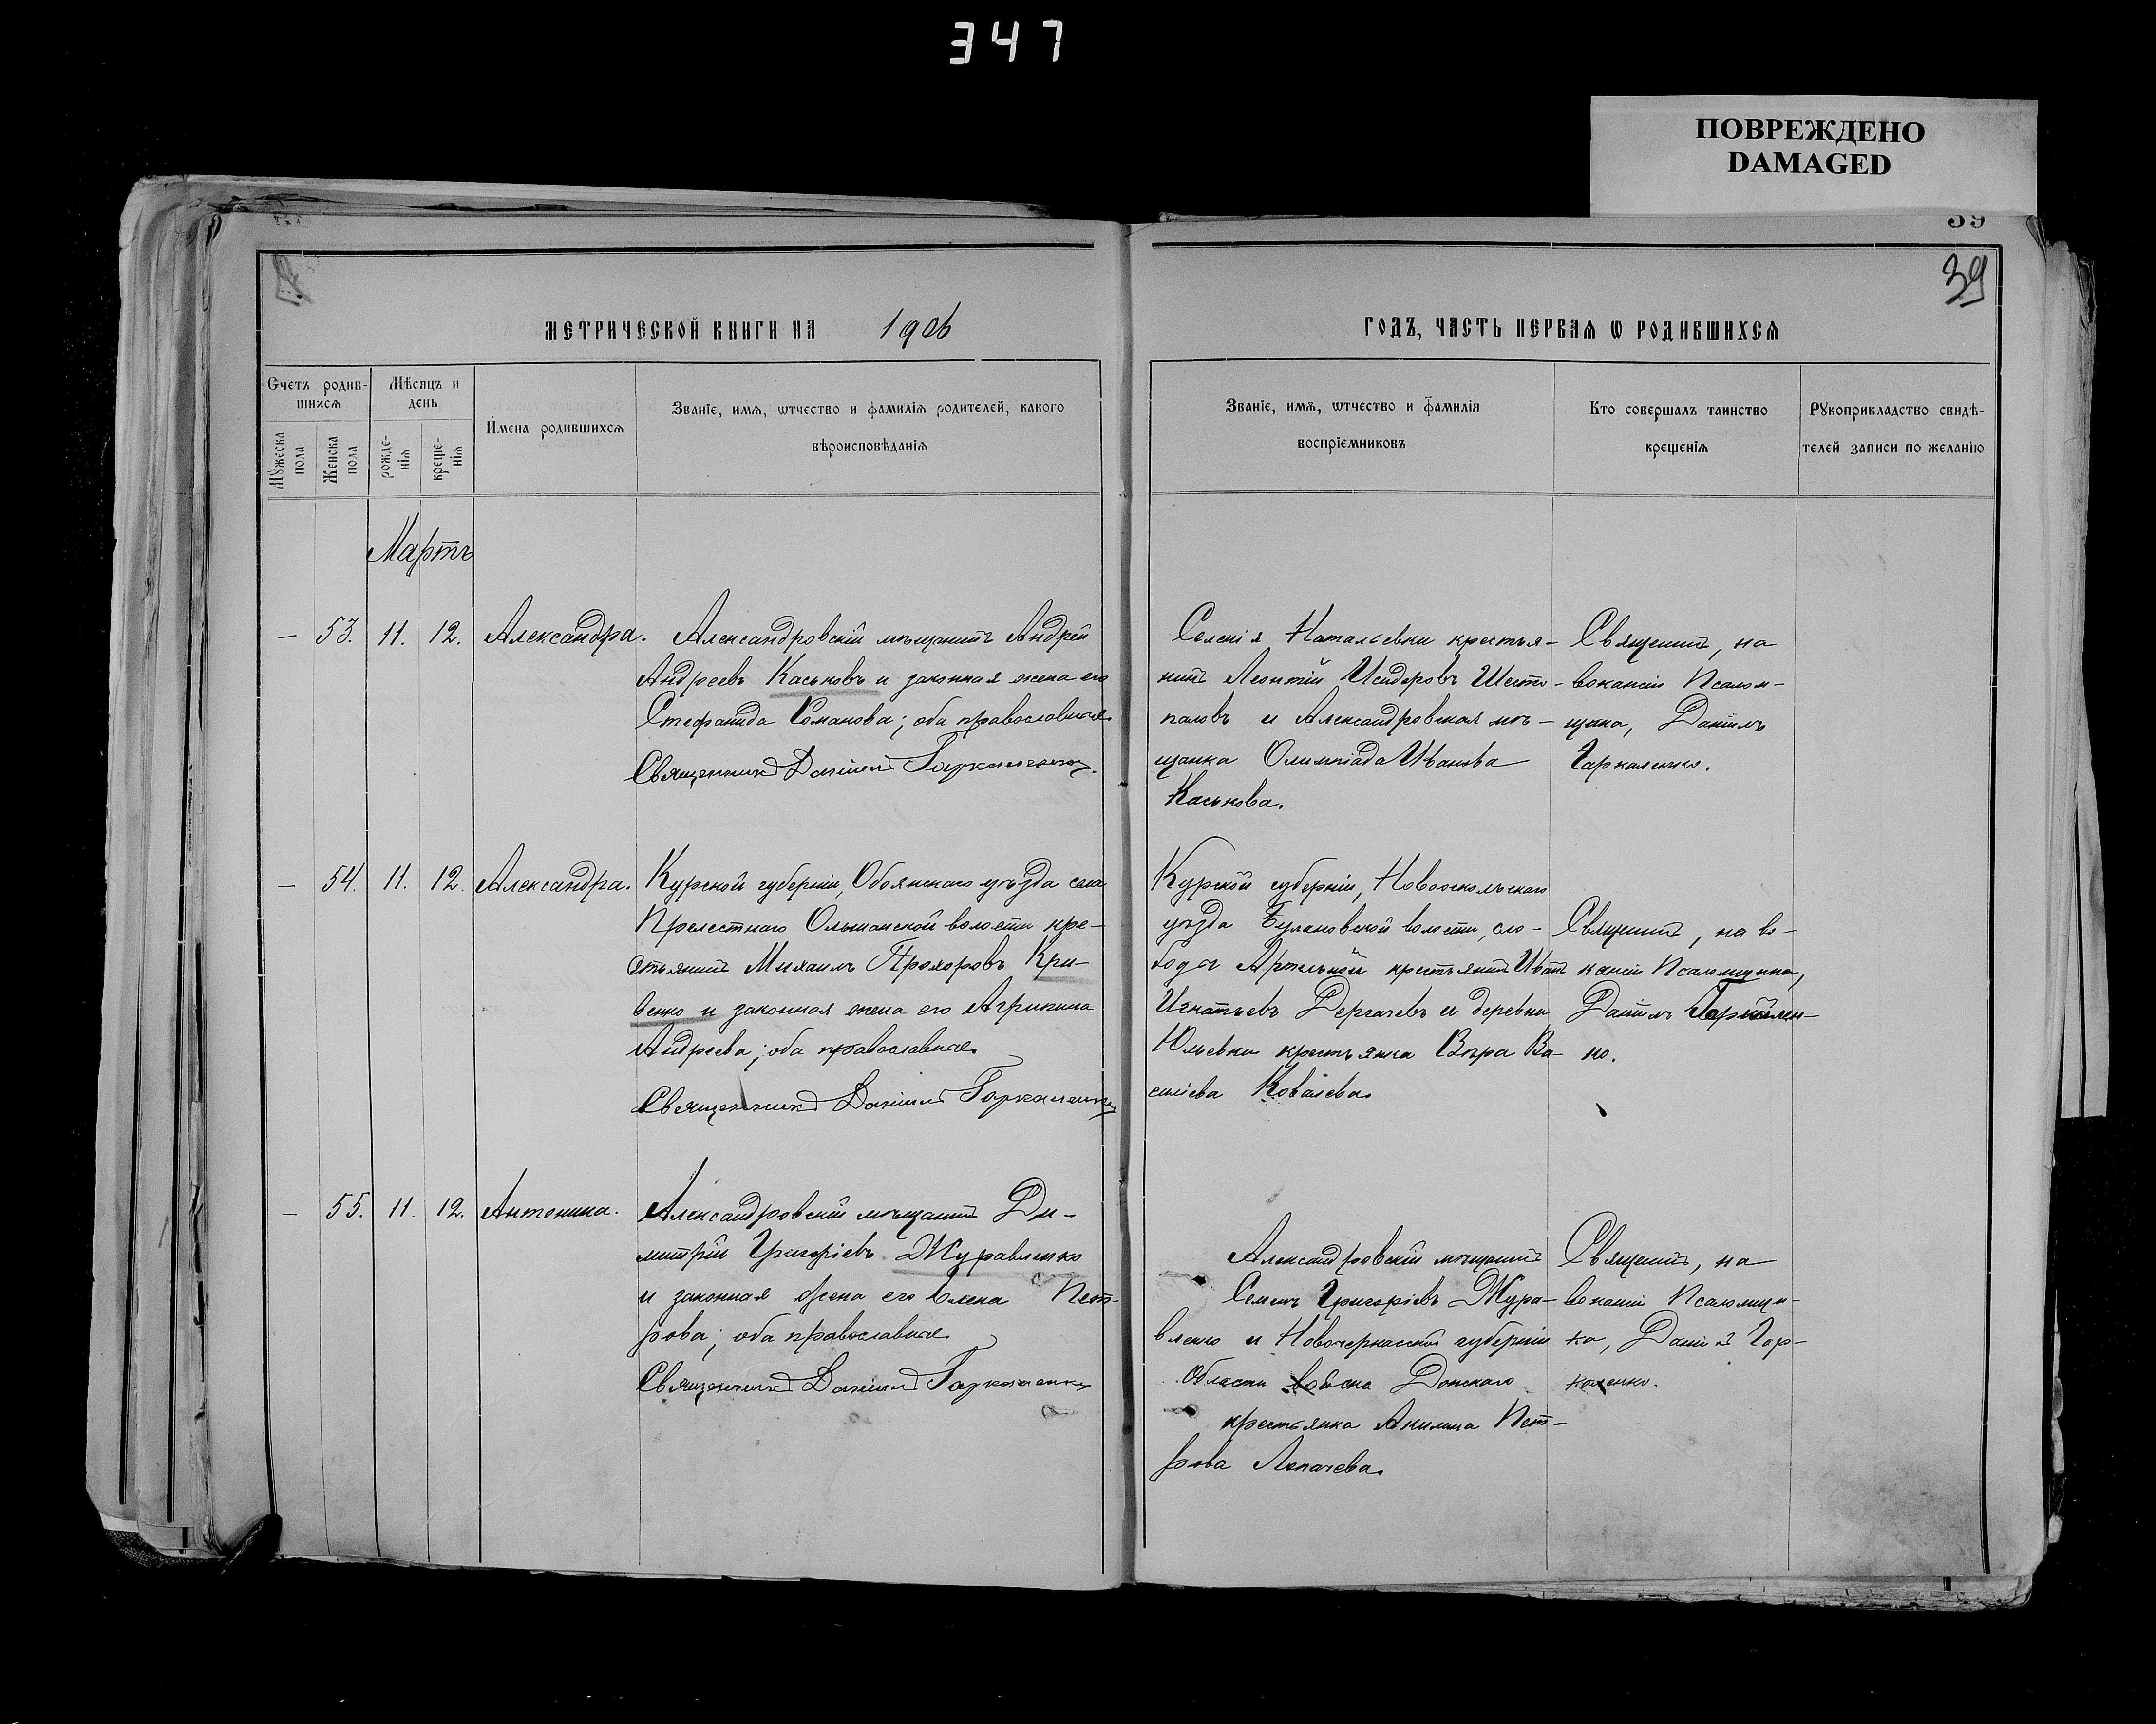 347
ПОВРЕЖДЕНО
DAMAGED
39
39
МЕТРИЧЕСКОЙ КНИГИ НА 1906
ГОДЪ, ЧАСТЬ ПЕРВАѦ Ѡ РОДИВШИХСѦ
Счетъ родив-
шихсѧ
Мꙋжеска пола
Женска пола
Мѣсяцъ и
день
рожде-
нїѧ
креще-
нїѧ
Имена родившихсѧ
Званїе, имѧ, ѡтчество и фамилїѧ родителей, какого
вѣроисповѣданїѧ
Званїе, имѧ, ѡтчество и фамилїѧ
воспрїемниковъ
Кто совершалъ таинство
крещенїѧ
Рꙋкоприкладство свидѣ-
телей записи по желанїю
Мартъ
— 53. 11. 12. Александра.
Александровскій мѣщанинъ Андрей
Андреевъ Каськовъ и законная жена его
Стефанида Романова; оба православные.
Священникъ Даніилъ Гаркаленко.
Селенія Натальевки крестья-
нинъ Леонтій Исидоровъ Шесто-
паловъ и Александровская мѣ-
щанка Олимпіада Иванова
Каськова.
Священникъ, на
вакансіи Псалом-
щика, Даніилъ
Гаркаленко.
— 54. 11. 12. Александра.
Курской губерніи, Обоянскаго уѣзда села
Прелестнаго Ольшанской волости кре-
стьянинъ Михаилъ Прохоровъ Кри-
венко и законная жена его Агрипина
Андреева; оба православные.
Священникъ Даніилъ Гаркаленко
Курской губерніи, Новооскольскаго
уѣзда Булановской волости, сло-
боды Артельной крестьянинъ Иванъ
Игнатьевъ Дергачевъ и деревни
Юльевки крестьянка Вѣра Ва-
силіева Ковалева.
Священникъ, на ва-
кансіи Псаломщика,
Даніилъ Гаркален-
ко.
— 55. 11. 12. Антонина.
Александровскій мѣщанинъ Ди-
митрій Григоріевъ Журавленко
и законная жена его Елена Пет-
рова; оба православные.
Священникъ Даніилъ Гаркаленко
Александровскій мѣщанинъ
Семенъ Григоріевъ Жура-
вленко и Новочеркасской губерніи
Области войска Донскаго
крестьянка Акилина Пет-
рова Лепачева.
Священникъ, на
вакансіи Псаломщи-
ка, Даніилъ Гар-
каленко.